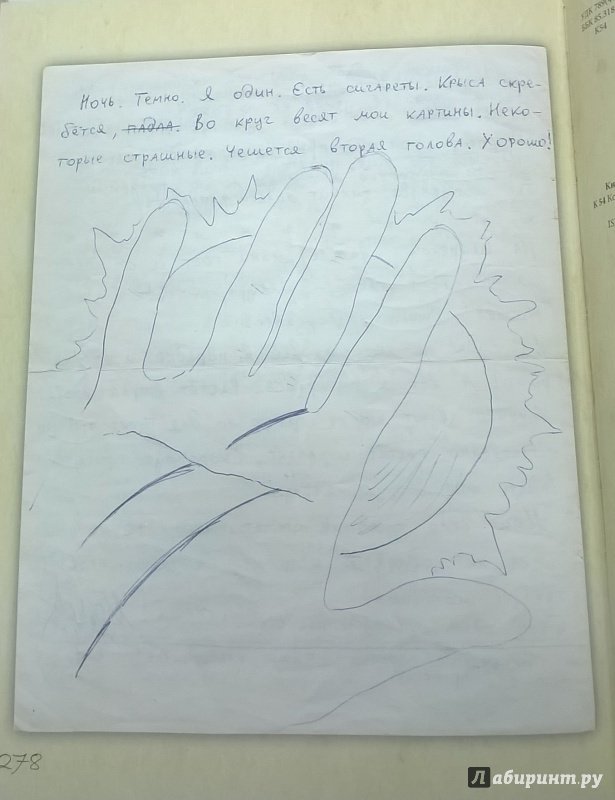 Ночь. Темно. Я один. Есть сигареты. Крыса скре-
бётся, падла. Во круг весят мои картины. Неко-
торые страшные. Чешется вторая голова. Хорошо!
УДК 789
ББК 85.318
К54
К54
278
Лабиринт.ру